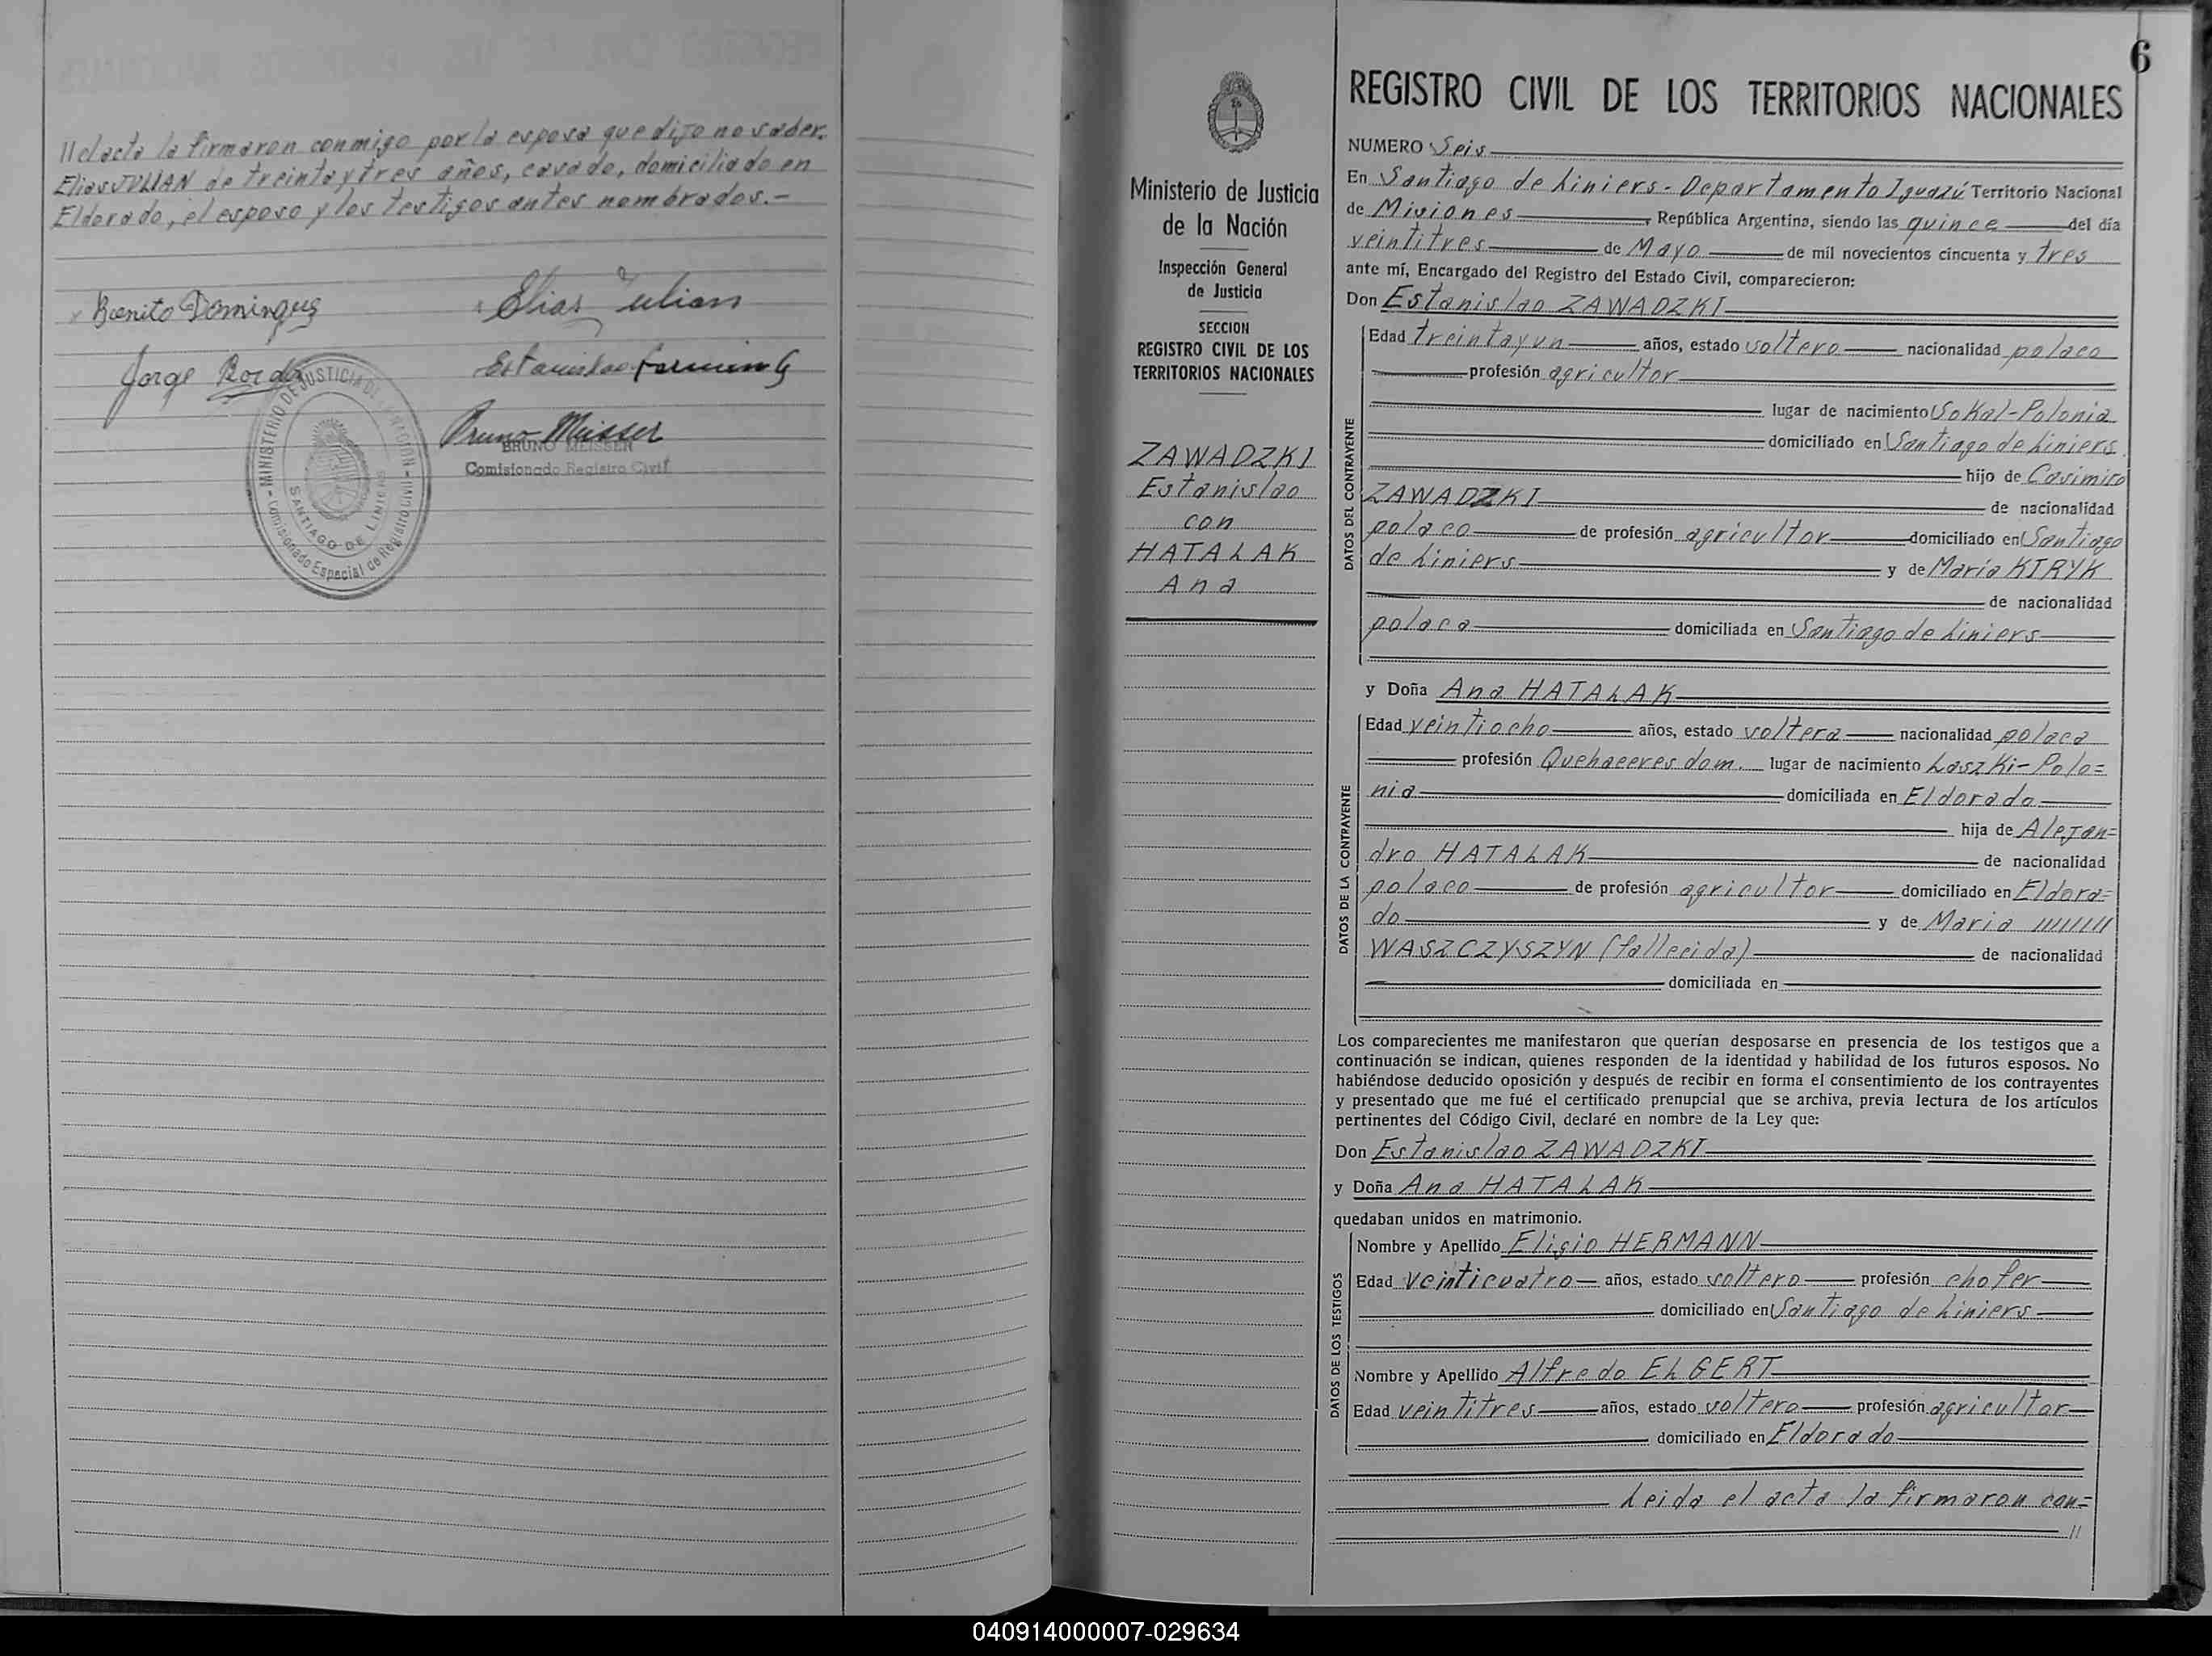 // el acta la firmaron conmigo por la esposa que dijo no saber.
Elias JULIAN de treinta y tres años, casado, domiciliado en
Eldorado, el esposo y los testigos antes nombrados.-
Elias Julian
Jorge
Estanislao
Bruno Meisser
BRUNO MEISSER
Comisionado Registro Civil
MINISTERIO DE JUSTICIA DE LA NACION
SANTIAGO DE LINIERS
Comisionado Especial de Registro Civil
6
Ministerio de Justicia
de la Nación
Inspección General
de Justicia
SECCION
REGISTRO CIVIL DE LOS
TERRITORIOS NACIONALES
ZAWADZKI
Estanislao
con
HATALAK
Ana
REGISTRO CIVIL DE LOS TERRITORIOS NACIONALES
NUMERO Seis
En Santiago de Liniers - Departamento Iguazú Territorio Nacional
de Misiones, República Argentina, siendo las quince del día
veintitres de Mayo de mil novecientos cincuenta y tres
ante mí, Encargado del Registro del Estado Civil, comparecieron:
Don Estanislao ZAWADZKI
DATOS DEL CONTRAYENTE
Edad treinta y un años, estado soltero nacionalidad polaco
profesión agricultor
lugar de nacimiento Sokal-Polonia
domiciliado en Santiago de Liniers
hijo de Casimiro
ZAWADZKI de nacionalidad
polaco de profesión agricultor domiciliado en Santiago
de Liniers y de María KIRYK
de nacionalidad
polaca domiciliada en Santiago de Liniers
y Doña Ana HATALAK
DATOS DE LA CONTRAYENTE
Edad veintiocho años, estado soltera nacionalidad polaca
profesión Quehaceres dom. lugar de nacimiento Laszki-Polo=
nia domiciliada en Eldorado
hija de Alejan=
dro HATALAK de nacionalidad
polaco de profesión agricultor domiciliado en Eldora=
do y de Maria ////////
WASZCZYSZYN (fallecida) de nacionalidad
domiciliada en
Los comparecientes me manifestaron que querían desposarse en presencia de los testigos que a
continuación se indican, quienes responden de la identidad y habilidad de los futuros esposos. No
habiéndose deducido oposición y después de recibir en forma el consentimiento de los contrayentes
y presentado que me fué el certificado prenupcial que se archiva, previa lectura de los artículos
pertinentes del Código Civil, declaré en nombre de la Ley que:
Don Estanislao ZAWADZKI
y Doña Ana HATALAK
quedaban unidos en matrimonio.
DATOS DE LOS TESTIGOS
Nombre y Apellido Eligio HERMANN
Edad veinticuatro años, estado soltero profesión chofer
domiciliado en Santiago de Liniers
Nombre y Apellido Alfredo ELGERT
Edad veintitres años, estado soltero profesión agricultor
domiciliado en Eldorado
Leida el acta la firmaron con=
//
040914000007-029634